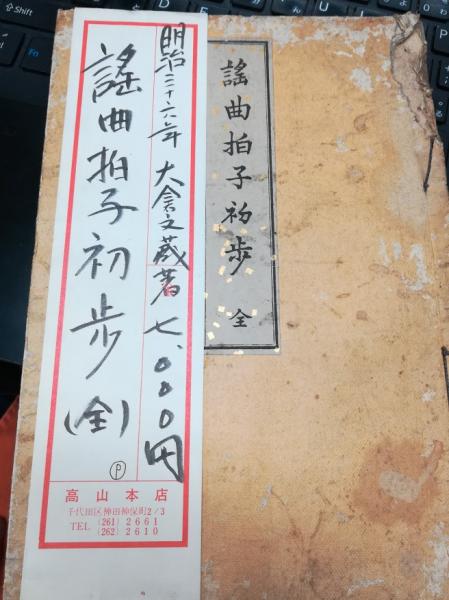 明治三十六年 大倉文蔵著 七、〇〇〇円
謡曲拍子初歩(全)
P
高山本店
千代田区神田神保町2/3
TEL (261) 2661
(262) 2610
謡曲拍子初歩 全
Shift